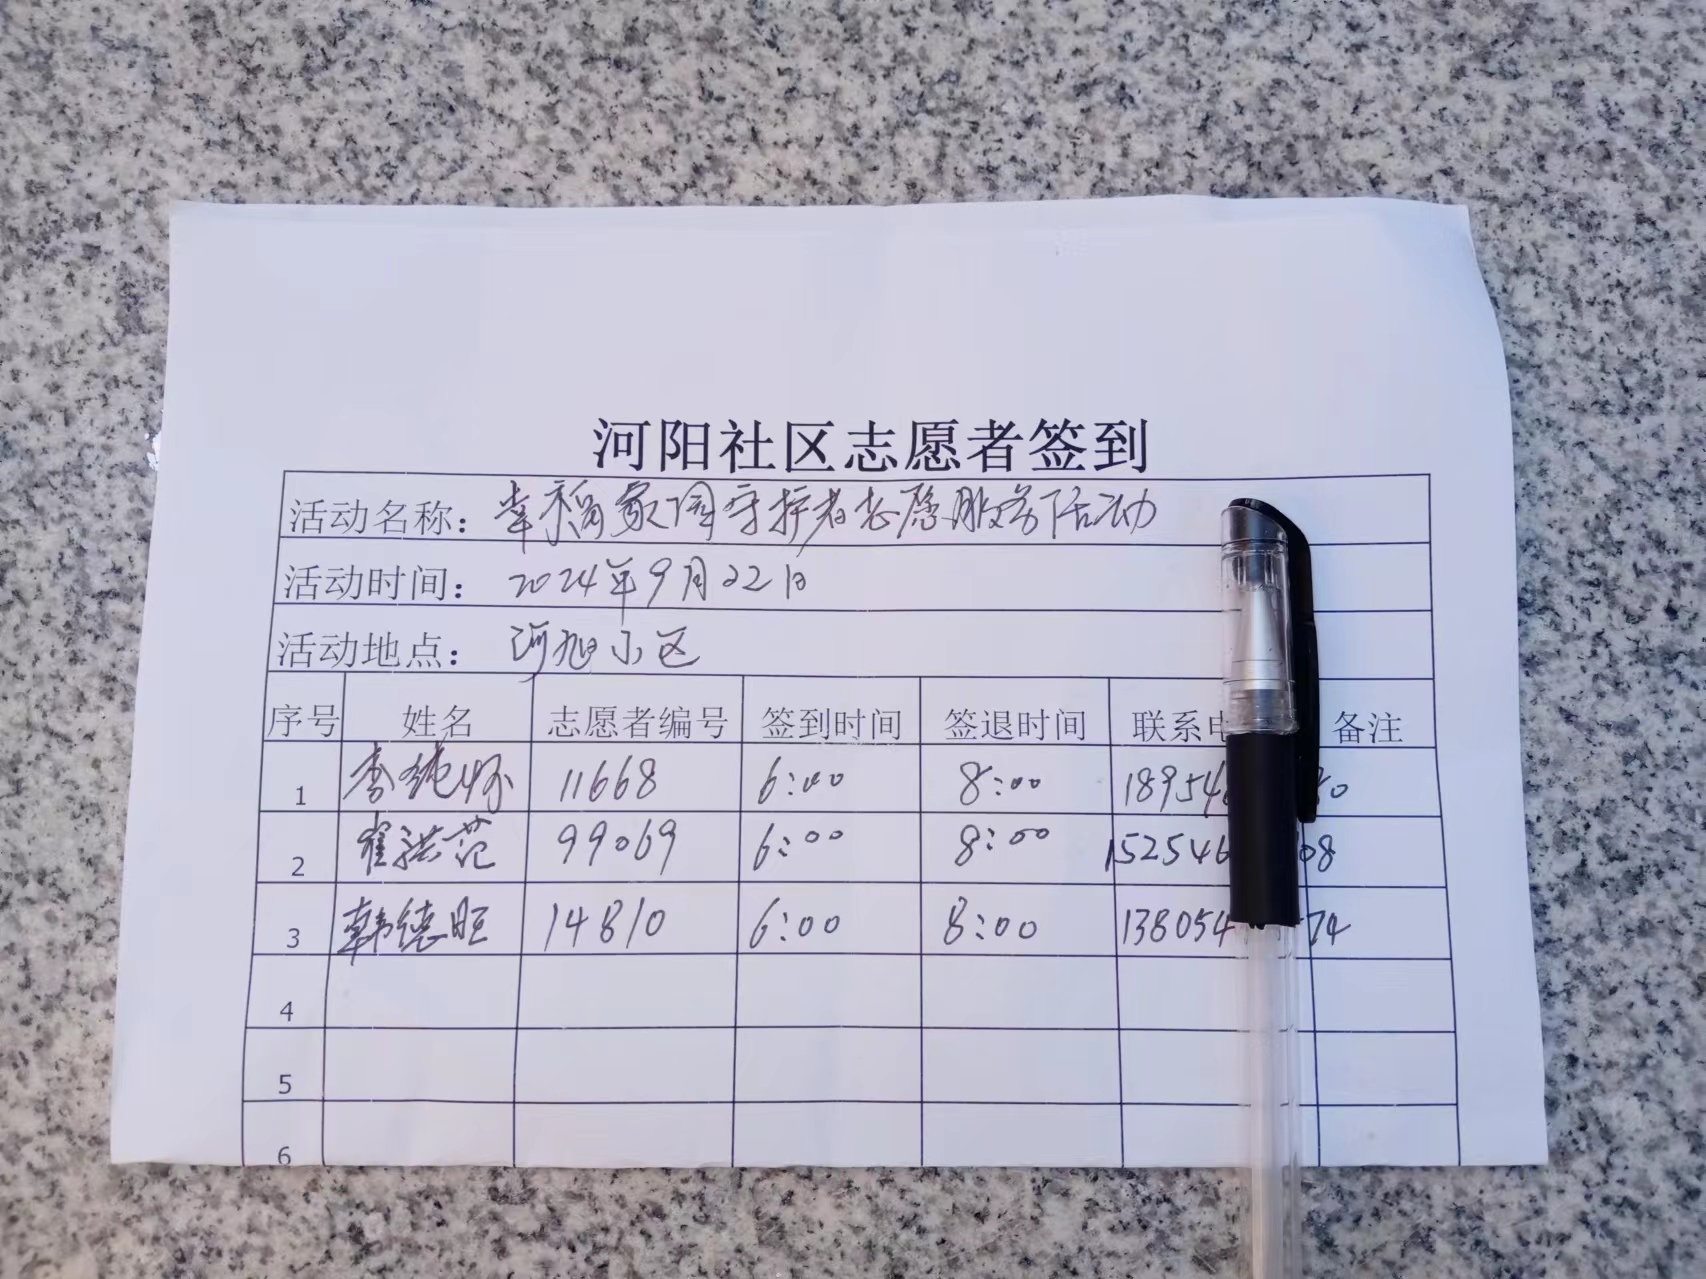 河阳社区志愿者签到
活动名称：幸福家园守护者志愿服务活动
活动时间：2024年9月22日
活动地点：河旭小区
序号 姓名 志愿者编号 签到时间 签退时间 联系电 备注
1 李纯怀 11668 6:00 8:00 189548 80
2 崔洪范 99069 6:00 8:00 152546 08
3 韩德旺 14810 6:00 8:00 138054 74
4
5
6